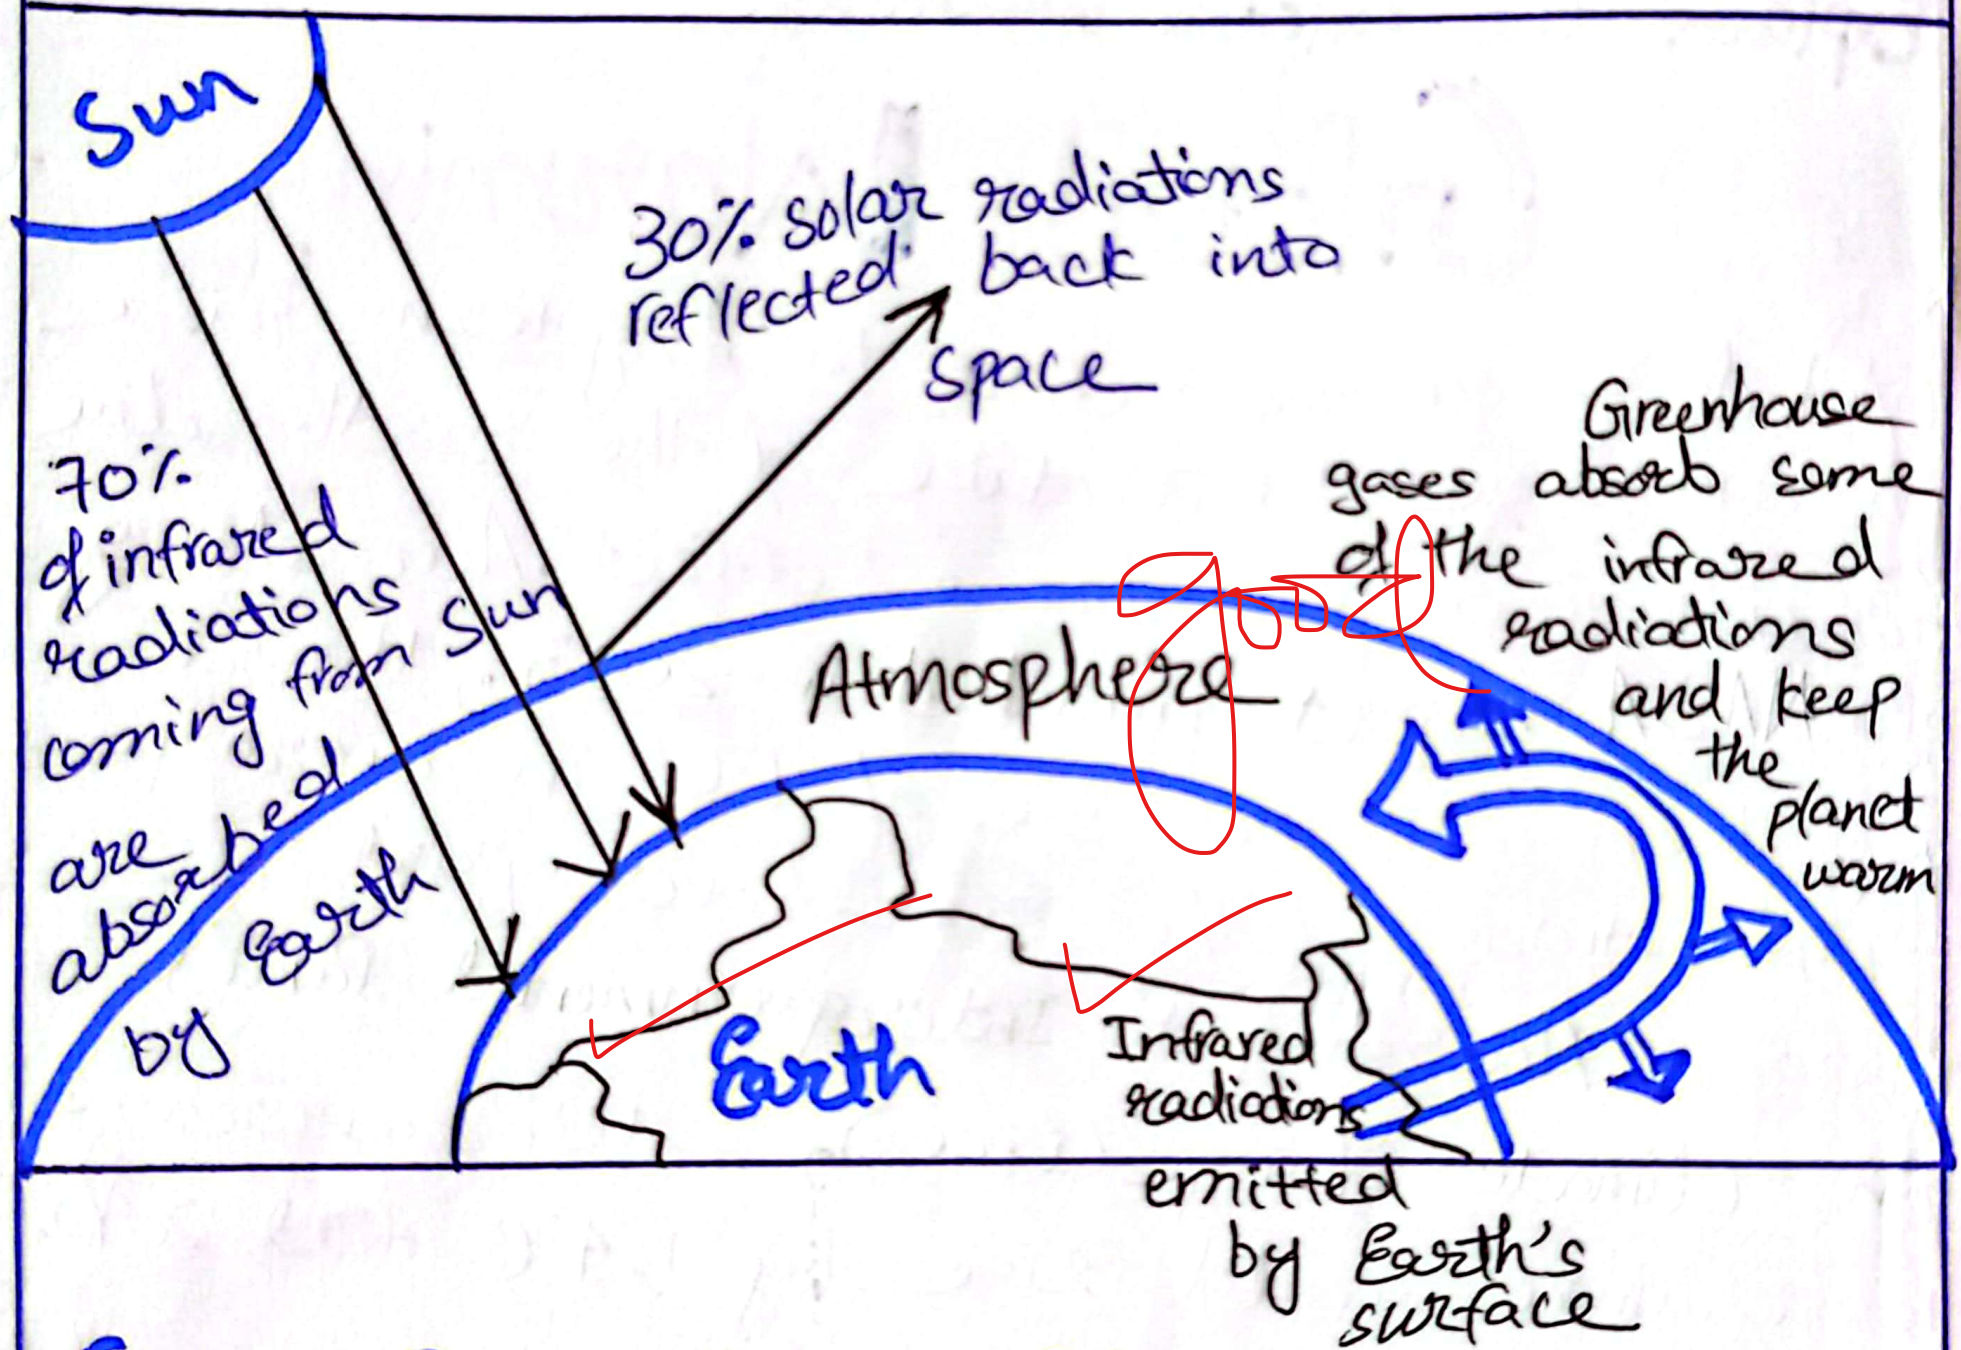 Sun
30% solar radiations
reflected back into
space
70%
of infrared
radiations
coming from Sun
are
absorbed
by Earth
Greenhouse
gases absorb some
of the infrared
radiations
and keep
the
planet
warm
Atmosphere
Good
Earth
Infrared
radiations
emitted
by Earth's
surface